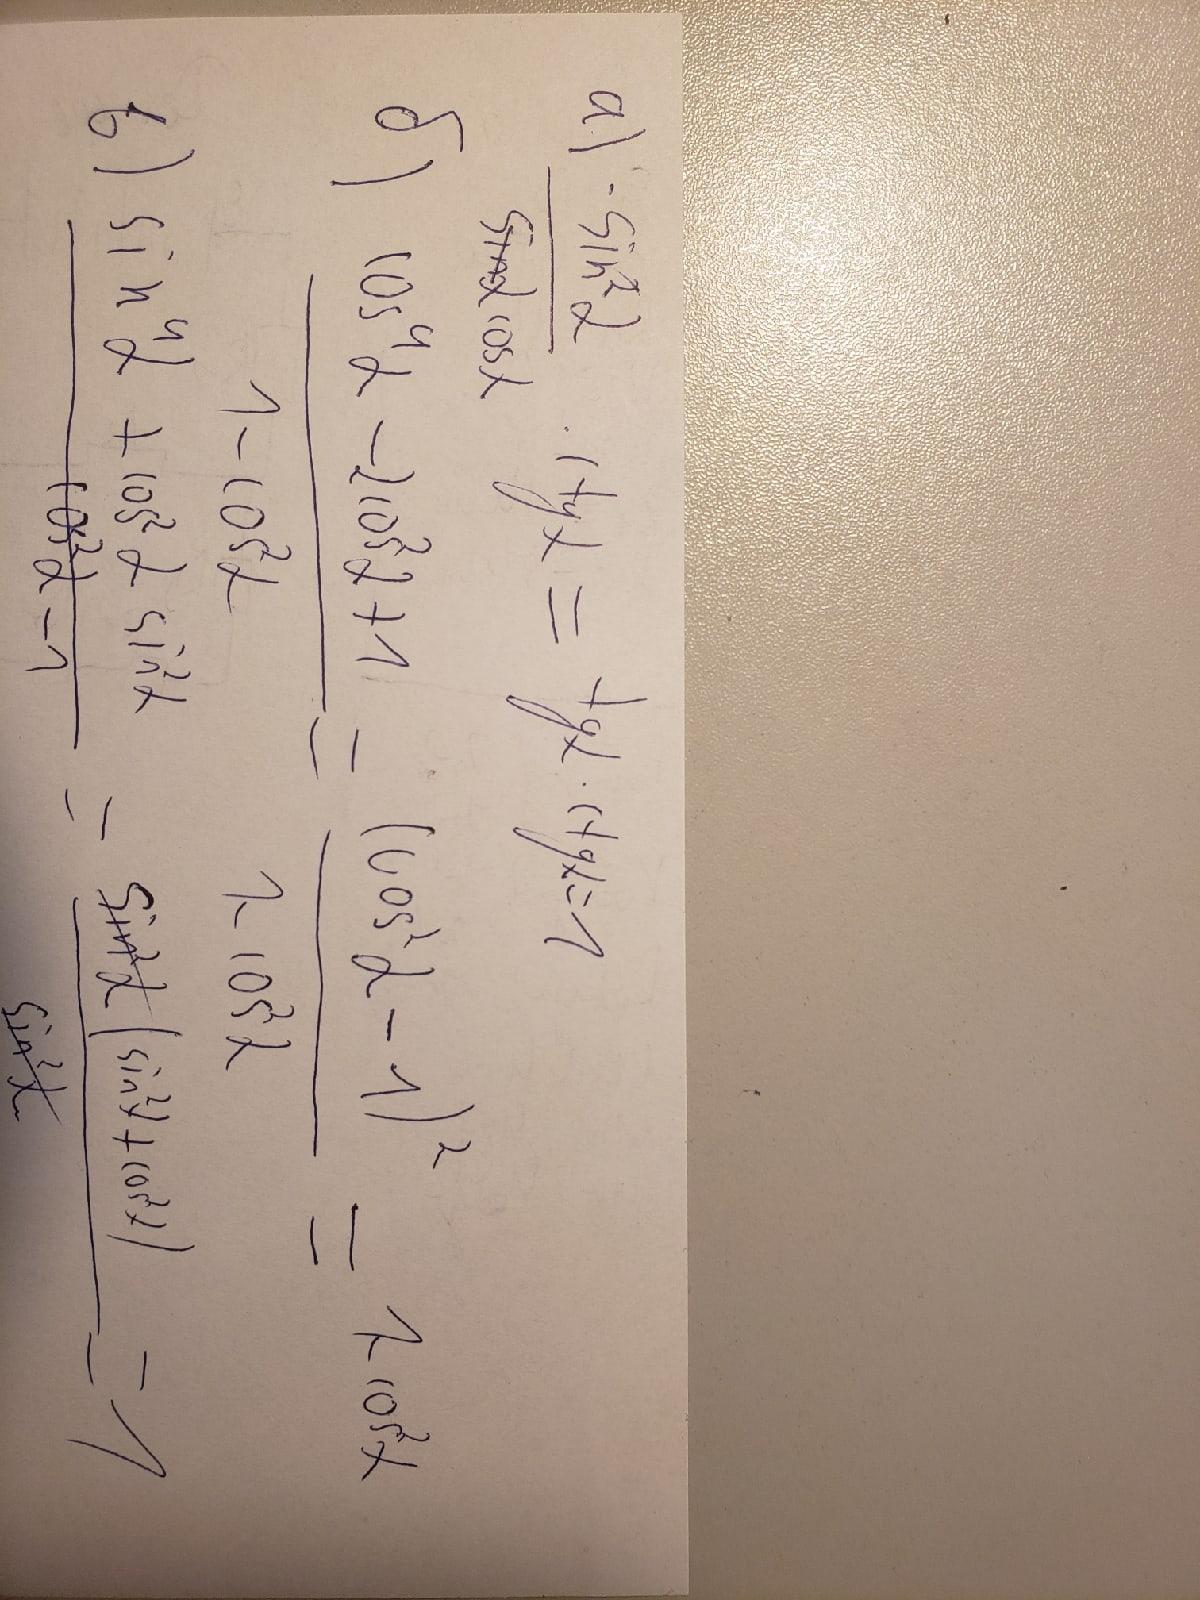 а) -sin²α
sinα cosα · ctgα = tgα · ctgα = 1
б) cos⁴α - 2cos²α + 1 = (cos²α - 1)² = 1-cos²α
1 - cos²α 1-cos²α
в) sin⁴α + cos²α sin²α = sin²α (sin²α + cos²α) = 1
cos²α - 1 sin²α